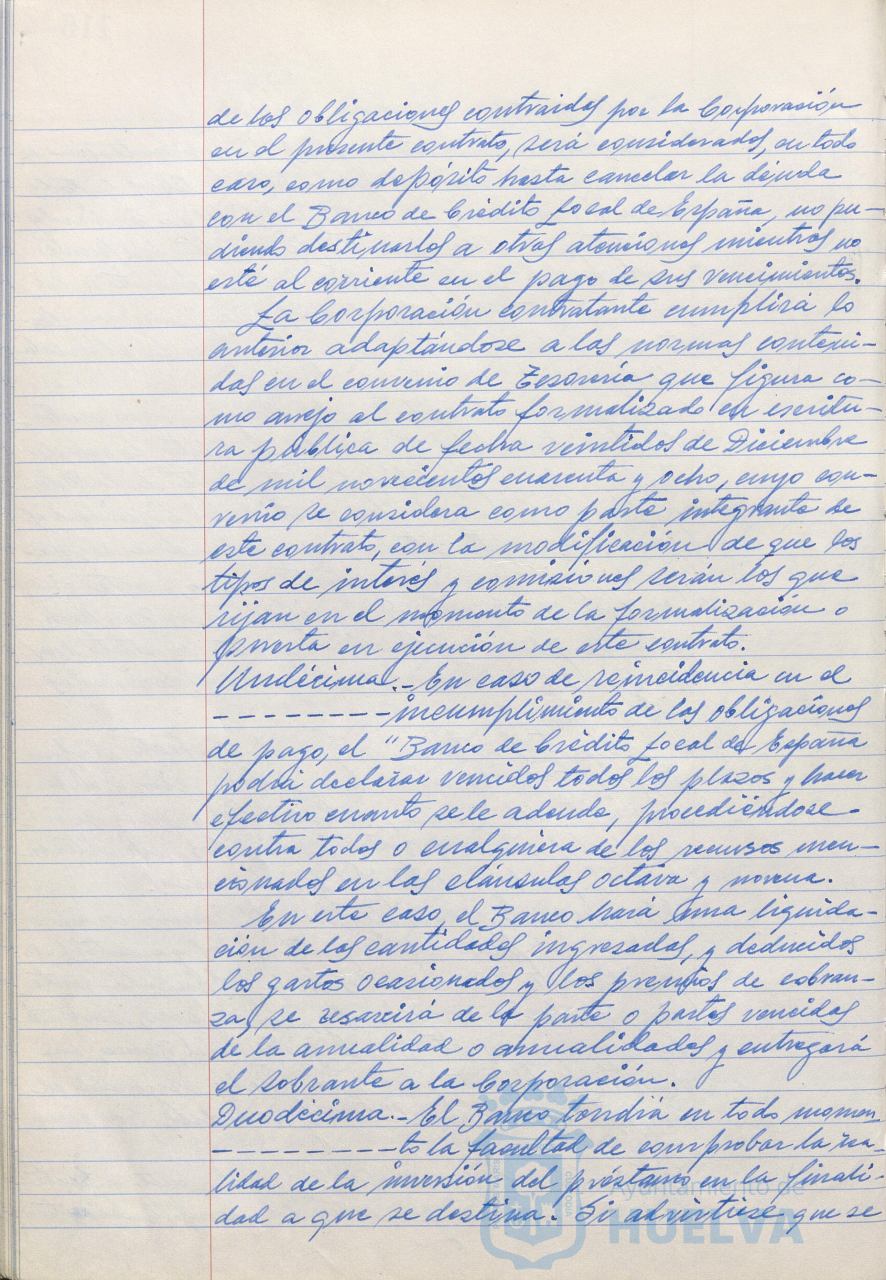 de las obligaciones contraidas por la Corporación
en el presente contrato, será considerados, en todo
caso, como depósito hasta cancelar la deuda
con el Banco de Crédito Local de España, no pu-
diendo destinarlos a otras atenciones mientras no
esté al corriente en el pago de sus vencimientos.
La Corporación contratante cumplirá lo
anterior adaptándose a las normas conteni-
das en el convenio de Tesorería que figura co-
mo anejo al contrato formalizado en escritu-
ra pública de fecha veintidos de Diciembre
de mil novecientos cuarenta y ocho, cuyo con-
venio se considera como parte integrante de
este contrato, con la modificación de que los
tipos de interés y comisiones serán los que
rijan en el momento de la formalización o
puesta en ejecución de este contrato.
Undécima.- En caso de reincidencia en el
--------- incumplimiento de las obligaciones
de pago, el "Banco de Crédito Local de España
podrá declarar vencidos todos los plazos y hacer
efectivo cuanto se le adeude, procediéndose
contra todos o cualquiera de los recursos men-
cionados en las cláusulas octava y novena.
En este caso, el Banco hará una liquida-
ción de las cantidades ingresadas, y deducidos
los gastos ocasionados y los premios de cobran-
za, se resarcirá de la parte o partes vencidas
de la anualidad o anualidades y entregará
el sobrante a la Corporación.
Duodécima.- El Banco tendrá en todo momen-
--------- to la facultad de comprobar la rea-
lidad de la inversión del préstamo en la finali-
dad a que se destina. Si advirtiese que se
Ayuntamiento de
HUELVA